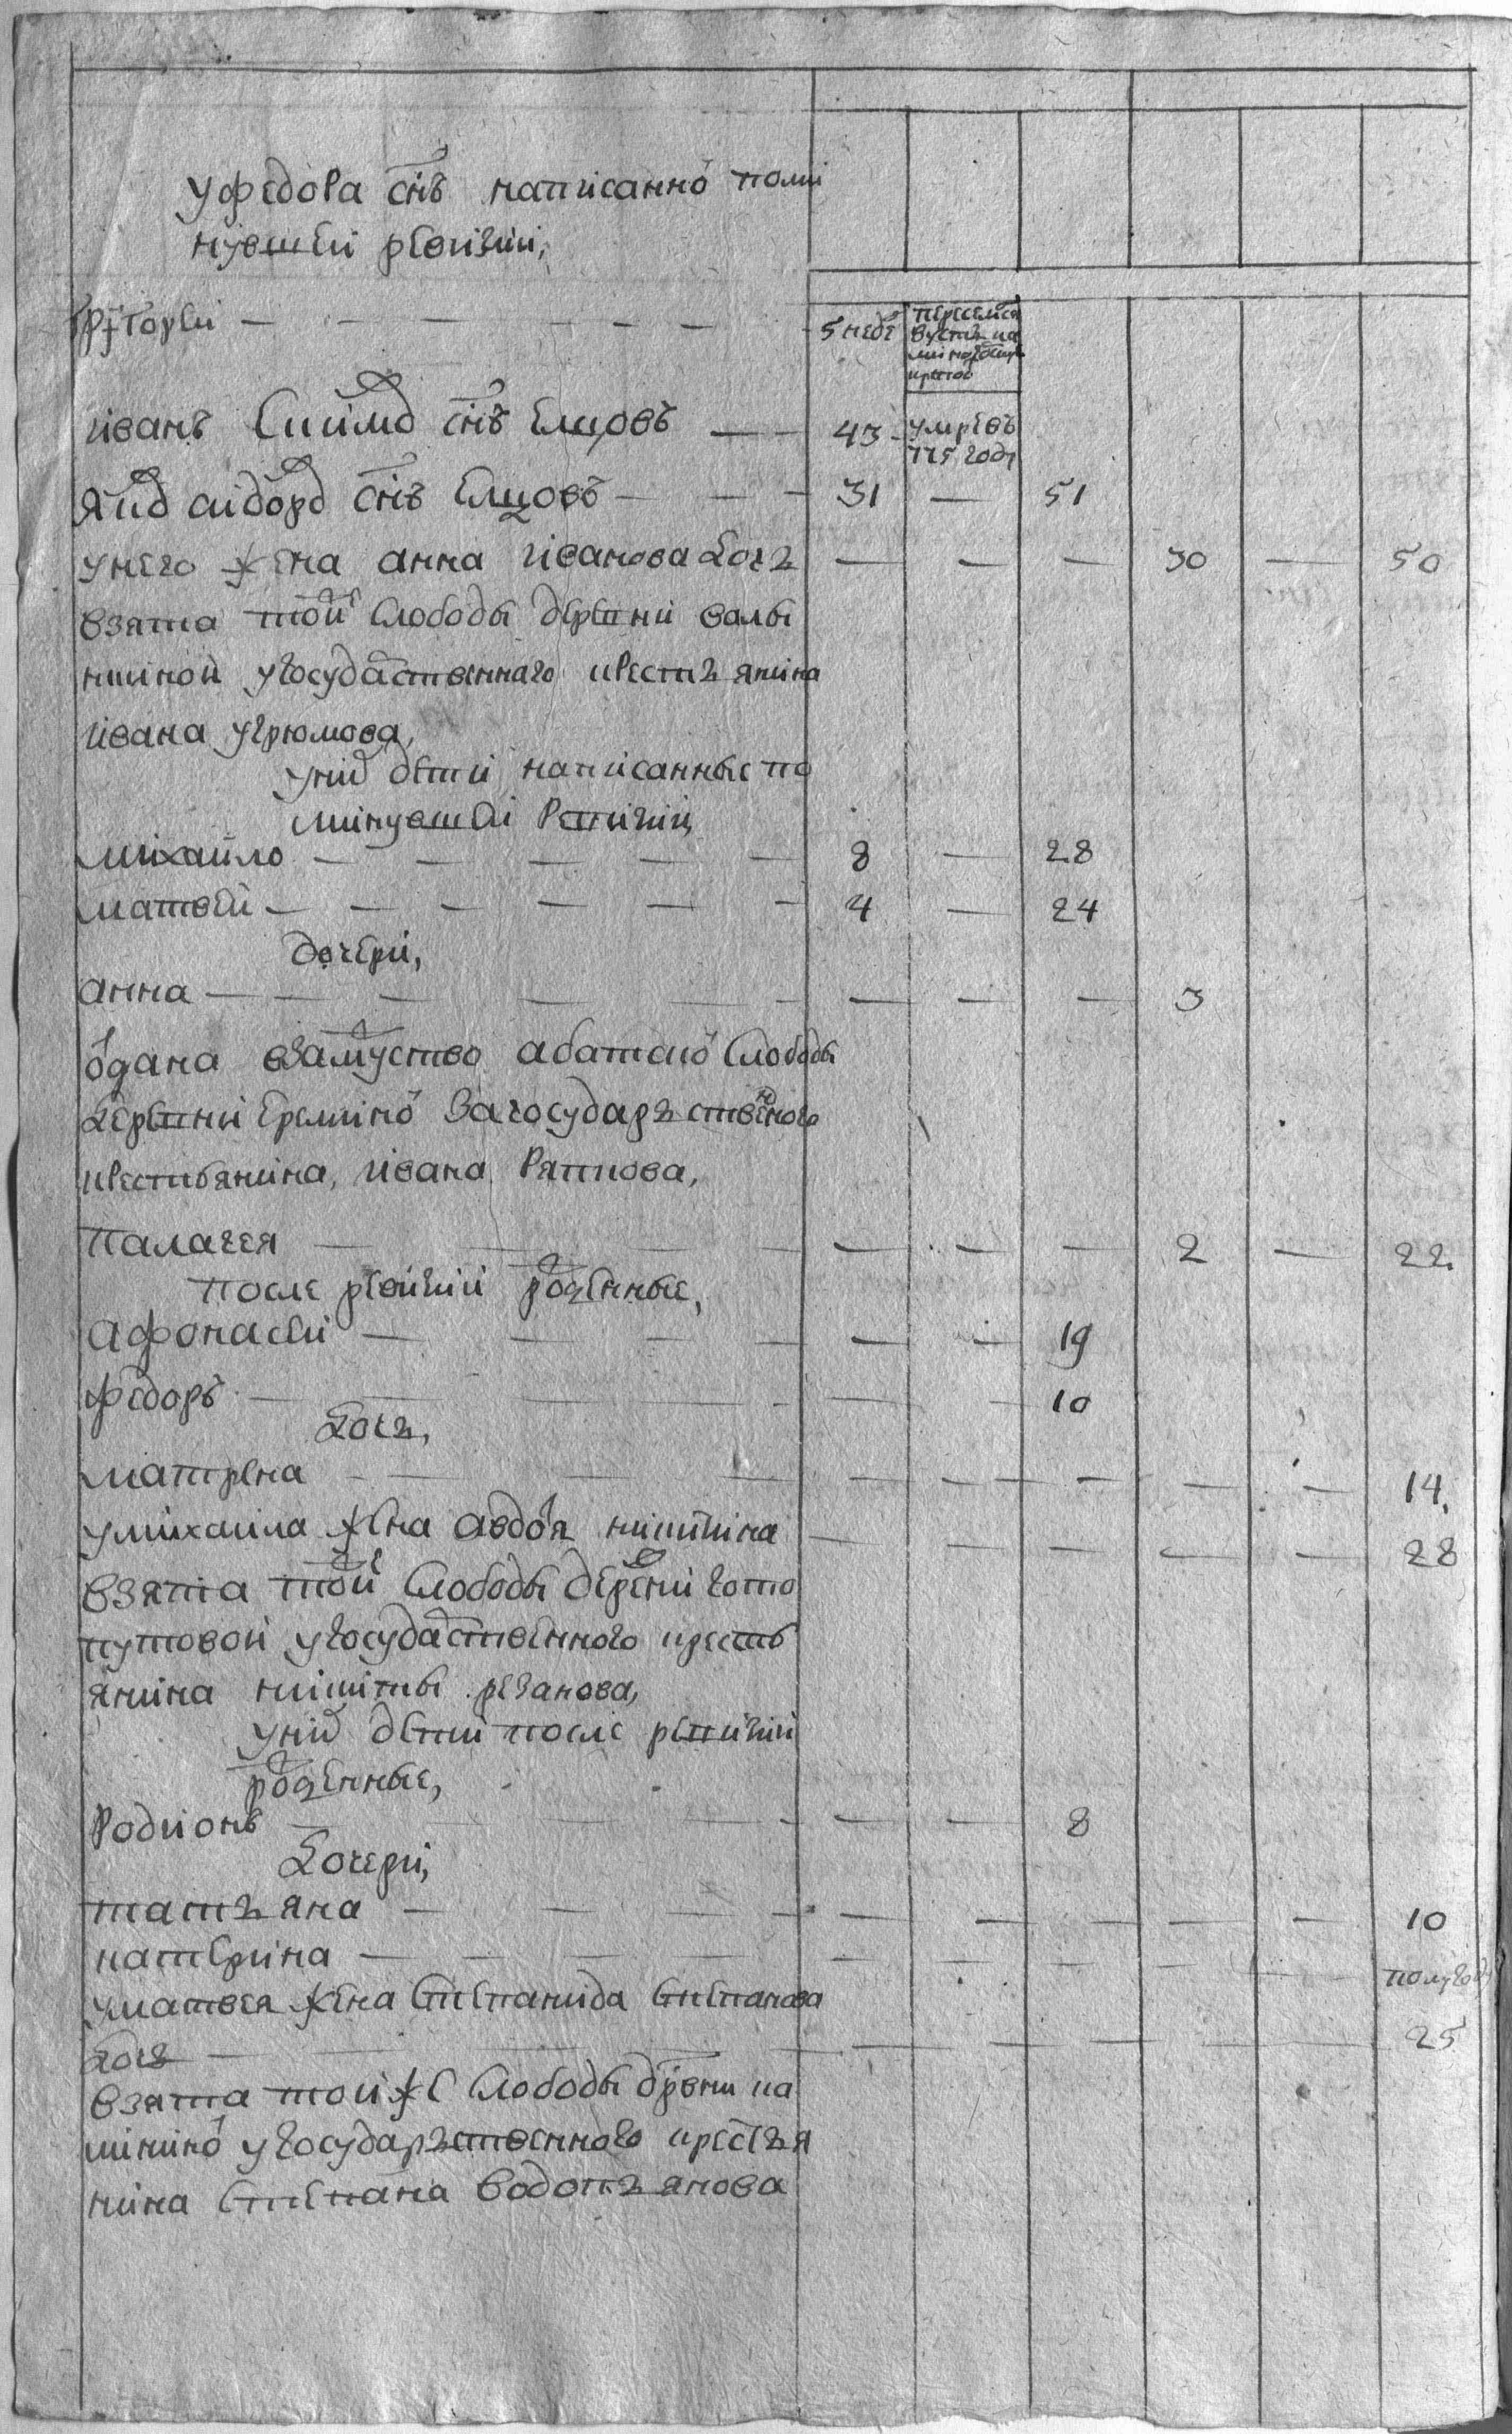 уфедора снъ написанно поми
нувшей ревизии,
григорей — 5 неде переселился вусть ка
мено
умре въ 775 году
иванъ снъ елцовъ — 43
яков сидоров снъ елцовъ — 31 — 51
унего жена анна иванова дочь — — — 30 — 50
взята той же слободы деревни валы
нкиной угосударственнаго крестьянина
ивана угрюмова,
уних дети написанные по
минувшей ревизии
михайло — 8 — 28
матвей — 4 — 24
дочери,
анна — — — — 3
отдана взамуство абатско слободы
деревни еремино загосударьственого
крестьянина, ивана
палагея — — — — 2 — 22.
после ревизии рожденные,
афонасеи — — — 19
федоръ — — — 10
дочь,
матрена — — — — — — 14.
умихаила жена авдотя никитина — — — — — 28
взята той же слободы деревни гото
путовой угосударственного кресть
янина никиты резанова,
уних дети после ревизии
рожденные,
родионъ — — — 8
дочери,
татьяна — — — — — — 10
катерина — — — — — — полугоду
уматвея жена степанида степанова
дочь — — — — — — 25
взята той же слободы дрвни ка
минино угосударьственного кресть я
нина степана водопьянова